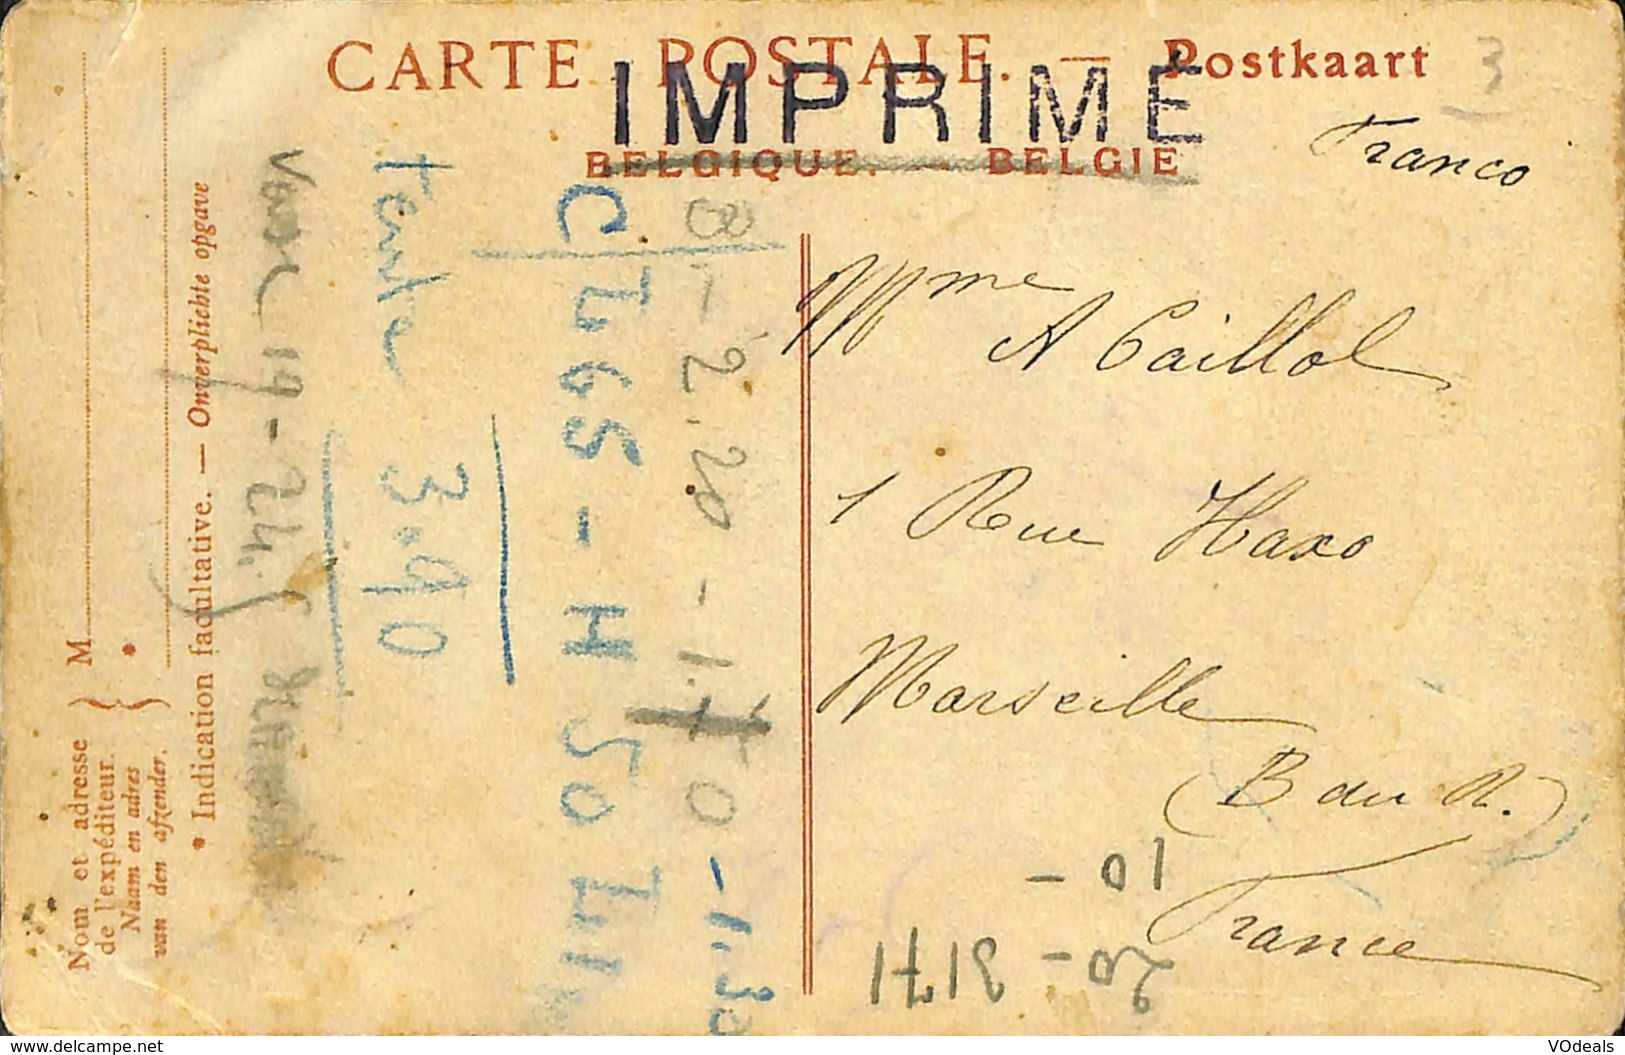 CARTE POSTALE. — Postkaart
IMPRIMÉ
BELGIQUE. — BELGIE
3
Franco
Mme A Caillol
1 Rue Haxo
Marseille
(B du R.)
France
10 -
20 - 3171
8 - 2.20 - 1.70 - 1.30
C
3.90
19 - 24.5
* Indication facultative. — Onverplichte opgave
M
*
Nom et adresse
de l'expéditeur.
Naam en adres
van den afzender.
www.delcampe.net
VOdeals